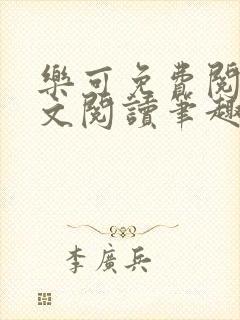 樂可免費閱
文閱讀筆趣
李廣兵